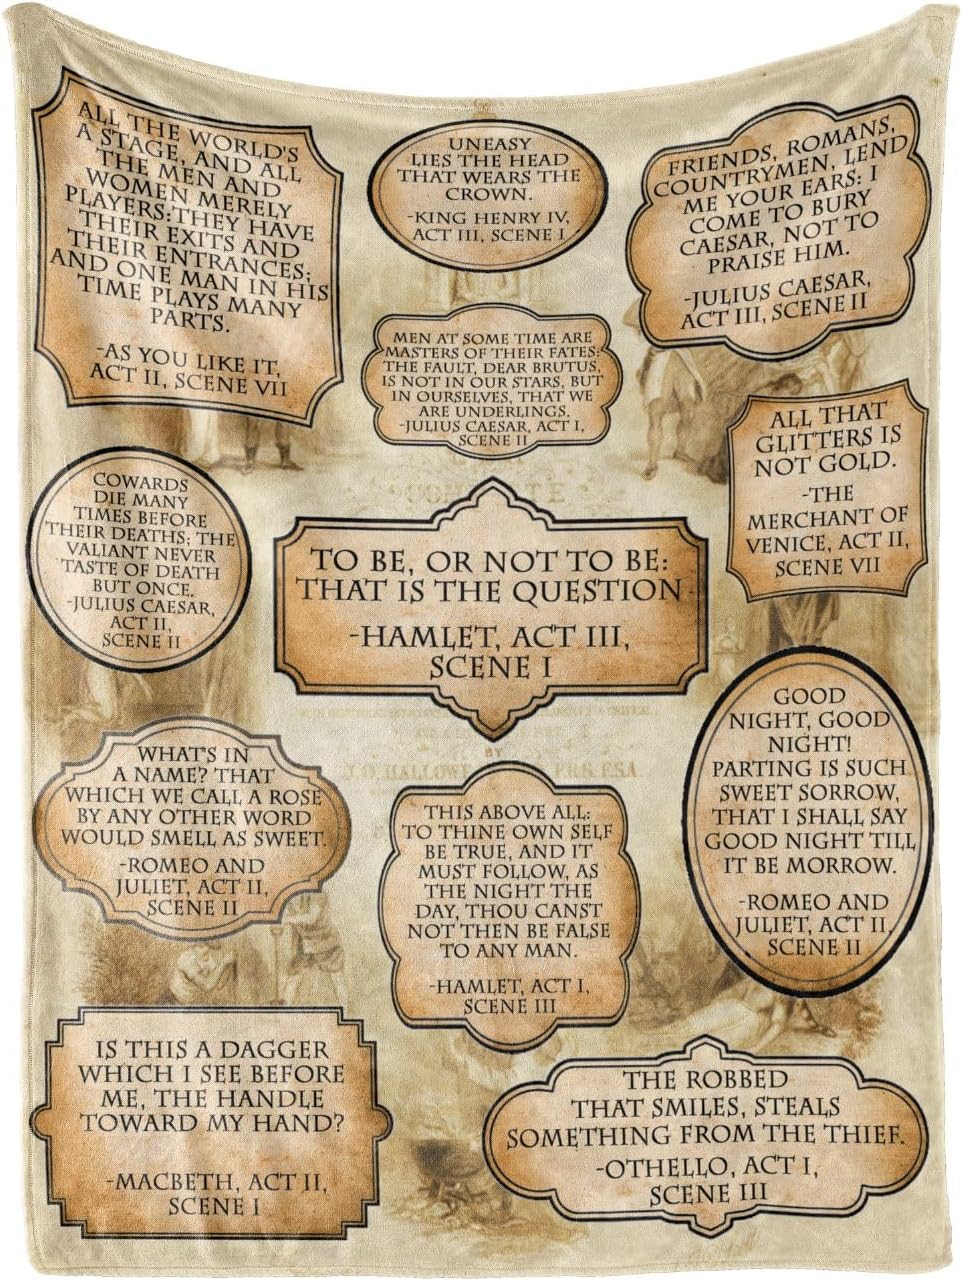 ALL THE WORLD'S
A STAGE, AND ALL
THE MEN AND
WOMEN MERELY
PLAYERS:THEY HAVE
THEIR EXITS AND
THEIR ENTRANCES;
AND ONE MAN IN HIS
TIME PLAYS MANY
PARTS.
-AS YOU LIKE IT,
ACT II, SCENE VII
UNEASY
LIES THE HEAD
THAT WEARS THE
CROWN.
-KING HENRY IV,
ACT III, SCENE I
FRIENDS, ROMANS,
COUNTRYMEN, LEND
ME YOUR EARS: I
COME TO BURY
CAESAR, NOT TO
PRAISE HIM.
-JULIUS CAESAR,
ACT III, SCENE II
MEN AT SOME TIME ARE
MASTERS OF THEIR FATES:
THE FAULT, DEAR BRUTUS,
IS NOT IN OUR STARS, BUT
IN OURSELVES, THAT WE
ARE UNDERLINGS.
-JULIUS CAESAR, ACT I,
SCENE II
ALL THAT
GLITTERS IS
NOT GOLD.
-THE
MERCHANT OF
VENICE, ACT II,
SCENE VII
COWARDS
DIE MANY
TIMES BEFORE
THEIR DEATHS; THE
VALIANT NEVER
TASTE OF DEATH
BUT ONCE.
-JULIUS CAESAR,
ACT II,
SCENE II
TO BE, OR NOT TO BE:
THAT IS THE QUESTION
-HAMLET, ACT III,
SCENE I
GOOD
NIGHT, GOOD
NIGHT!
PARTING IS SUCH
SWEET SORROW,
THAT I SHALL SAY
GOOD NIGHT TILL
IT BE MORROW.
-ROMEO AND
JULIET, ACT II,
SCENE II
WHAT'S IN
A NAME? THAT
WHICH WE CALL A ROSE
BY ANY OTHER WORD
WOULD SMELL AS SWEET.
-ROMEO AND
JULIET, ACT II,
SCENE II
BY
J.O. HALLOW F.R.S. F.S.A.
THIS ABOVE ALL:
TO THINE OWN SELF
BE TRUE, AND IT
MUST FOLLOW, AS
THE NIGHT THE
DAY, THOU CANST
NOT THEN BE FALSE
TO ANY MAN.
-HAMLET, ACT I,
SCENE III
IS THIS A DAGGER
WHICH I SEE BEFORE
ME, THE HANDLE
TOWARD MY HAND?
-MACBETH, ACT II,
SCENE I
THE ROBBED
THAT SMILES, STEALS
SOMETHING FROM THE THIEF.
-OTHELLO, ACT I,
SCENE III